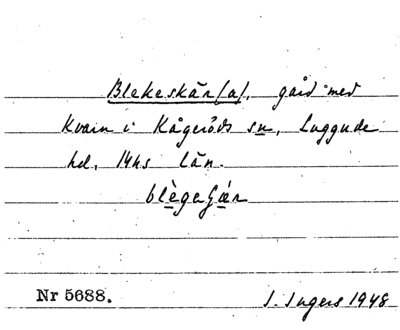 Blekeskär(a), gård med
kvarn i Kågeröds sn, Luggude
hd, Mhs län.
blègeʃær
Nr 5688. I. Ingers 1948